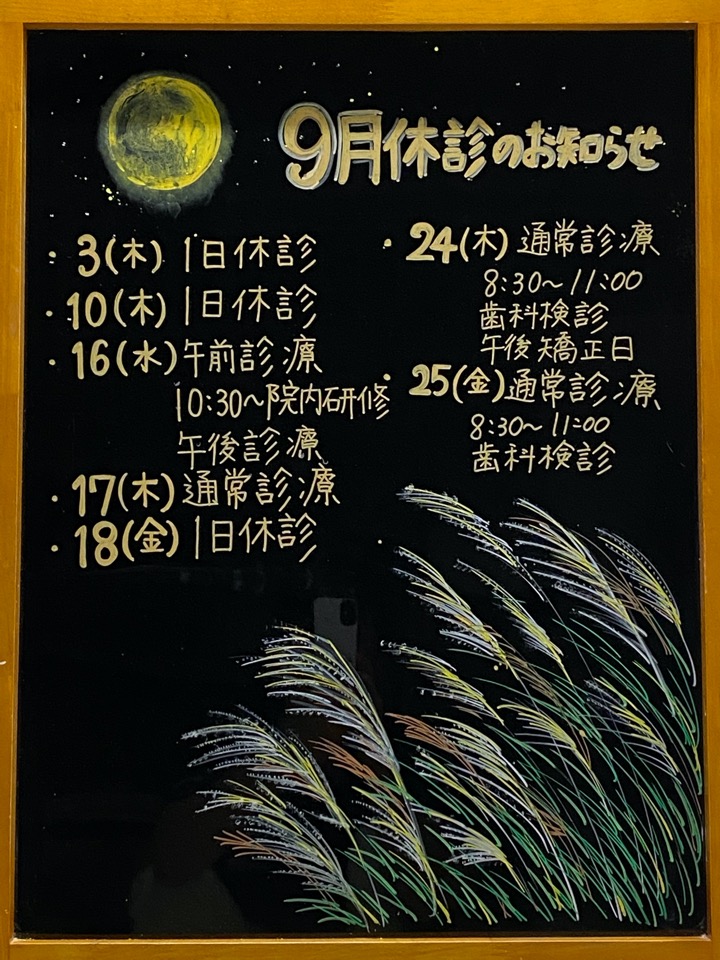 9月休診のお知らせ
・3(木) 1日休診
・10(木) 1日休診
・16(水)午前診療
10:30〜院内研修
午後診療
・17(木)通常診療
・18(金) 1日休診
・24(木) 通常診療
8:30〜11:00
歯科検診
午後矯正日
・25(金)通常診療
8:30〜11:00
歯科検診